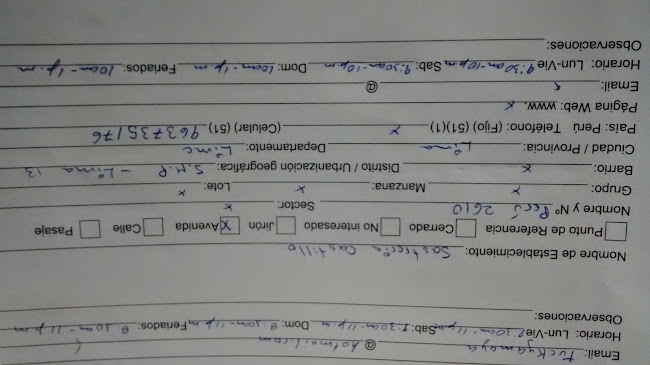 Email: Tuckyamaya @ hotmail.com
Horario: Lun-Vie 8:30am-11pm Sab: 8:30am-11pm Dom: 8:30am-11pm Feriados 8:30am-11pm
Observaciones:
Nombre de Establecimiento: Sastrería Castillo
Punto de Referencia Cerrado No interesado Jirón X Avenida Calle Pasaje
Nombre y Nº Perú 2610 Sector: x
Grupo: x Manzana: x Lote: x
Barrio: x Distrito / Urbanización geográfica: S.M.P - Lima 13
Ciudad / Provincia: Lima Departamento: Lima
País: Perú Teléfono: (Fijo) (51)(1) x (Celular) (51) 963735176
Página Web: www. x
Email: x @
Horario: Lun-Vie 9:30am-10pm Sab: 9:30am-10pm Dom: 10am-1pm Feriados: 10am-1p.m
Observaciones: